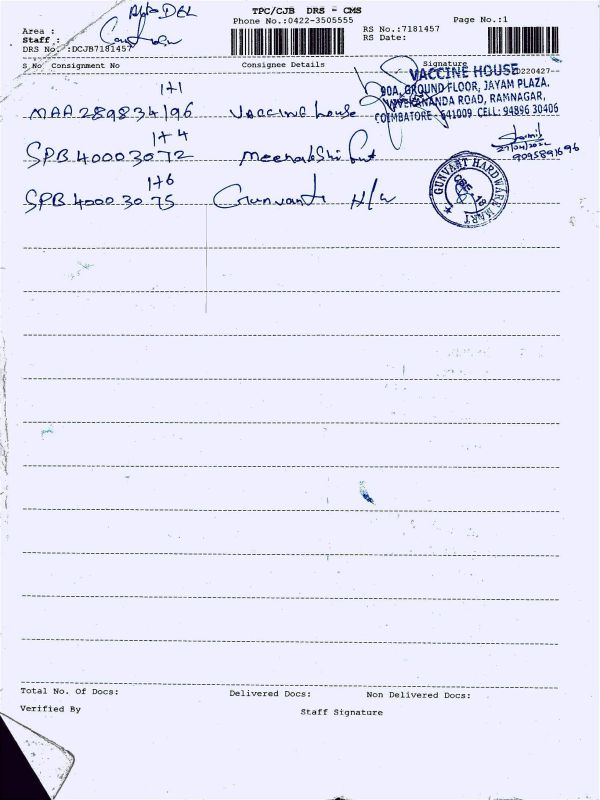 TPC/CJB DRS - CMS
Phone No.:0422-3505555
Page No.:1
Area :
Staff :
DRS No. :DCJB7181457
RS No.:7181457
RS Date:
S No Consignment No Consignee Details Signature
20220427
VACCINE HOUSE
90A, GROUND FLOOR, JAYAM PLAZA,
VIVEKANANDA ROAD, RAMNAGAR,
COIMBATORE - 641009 CELL: 94896 30406
1+1
MAA289834196 Vaccine house
1+4
SPB40003072 Meenakshi
27/04/2022
9095891696
1+6
SPB40003075 Gunvant H/W
GUNVANT HARDWARE MART
Total No. Of Docs: Delivered Docs: Non Delivered Docs:
Verified By Staff Signature